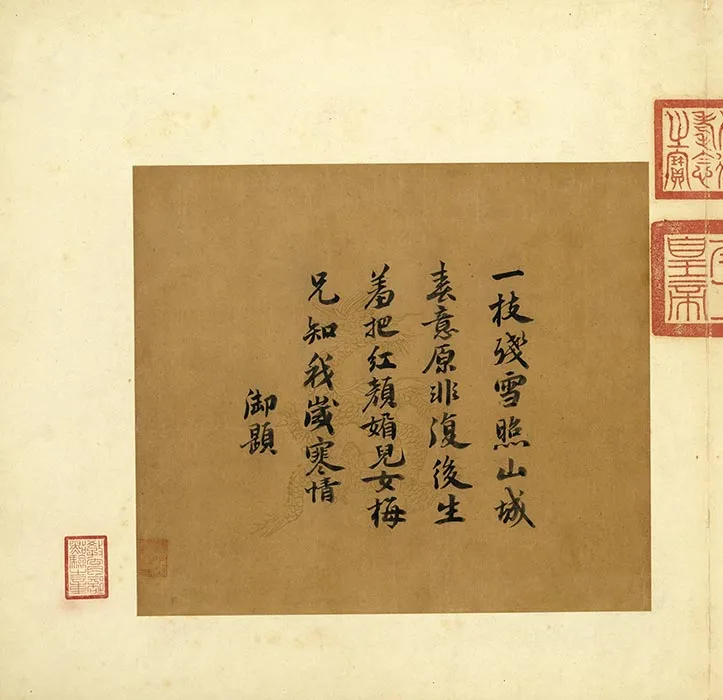 一枝殘雪照山城
春意原非復後生
羞把紅顏媚兒女梅
兄知我歲寒情
御題
耄念
之寶
皇帝